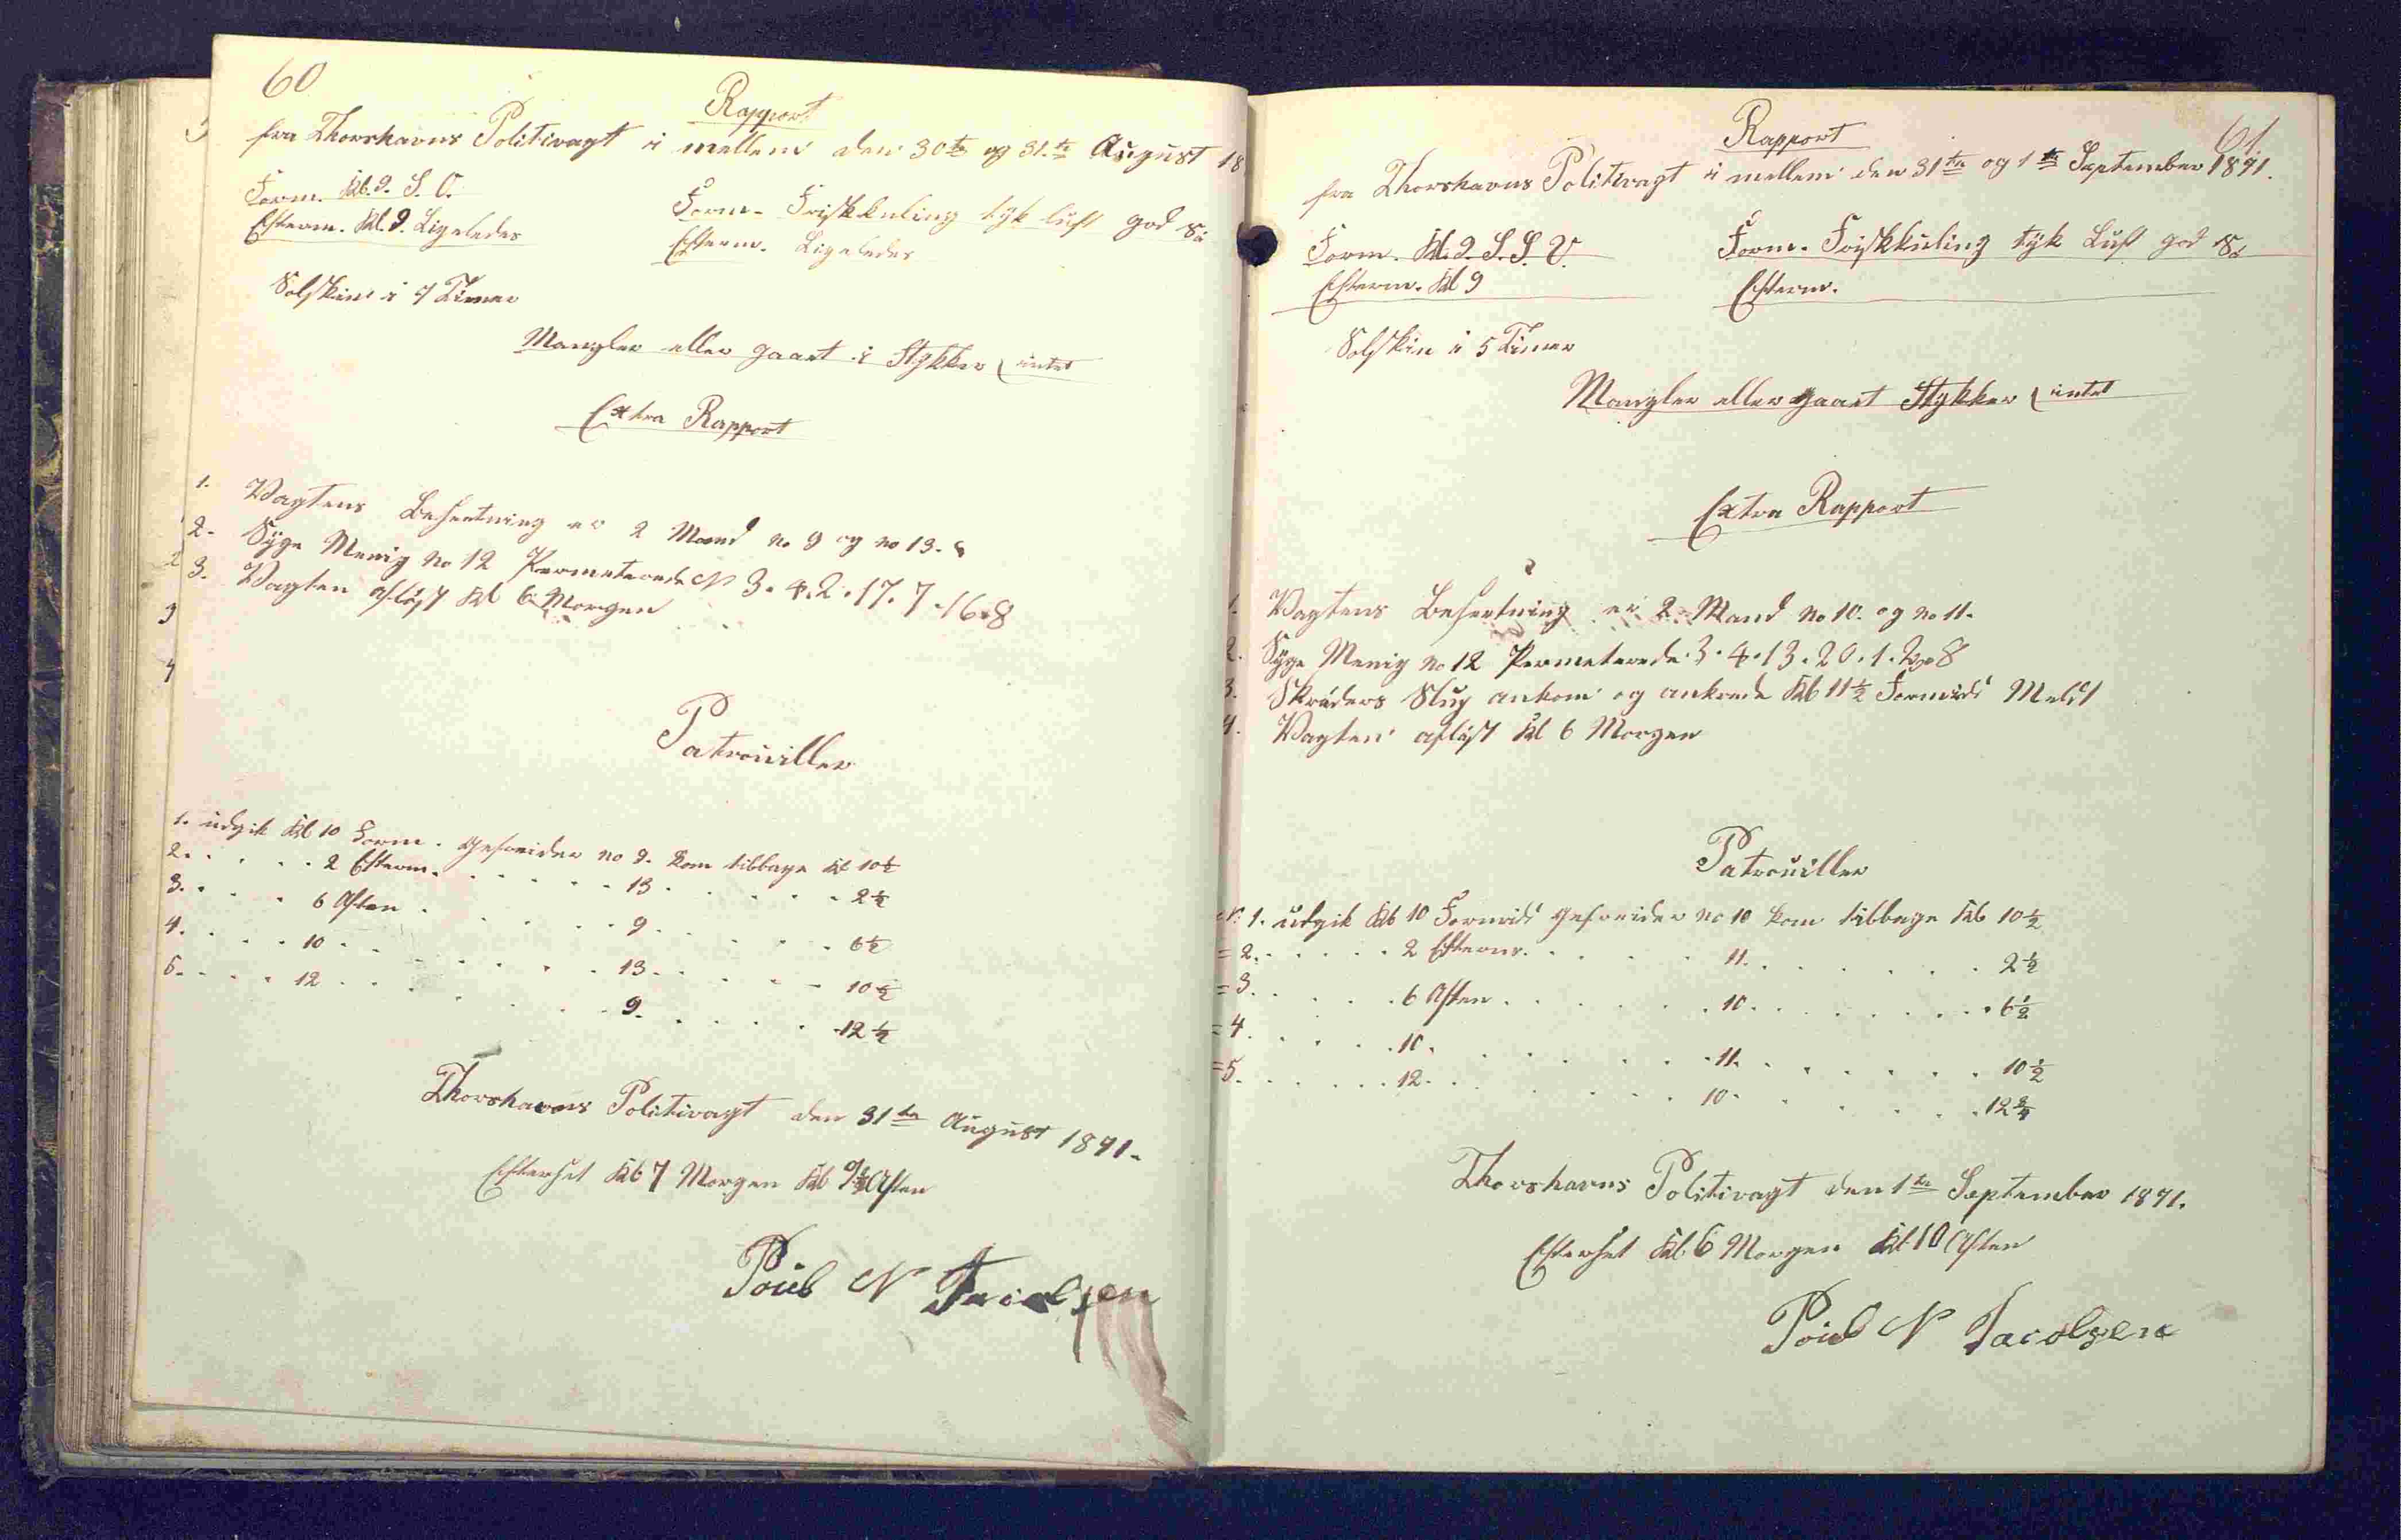 60
Rapport
fra Thorshavns Politivagt i mellem den 30te og 31.te August 18
Form. Kl. 9. S. O.
Efterm. Kl. 9. Ligeledes
Form. Friskkuling tyk luft god Sø
Efterm. Ligeledes
Solskin i 7 Timer
Mangler eller gaaet i Stykker ( intet
Extra Rapport
1. Vagtens Besætning er 2 Mand no 9 og no 13.
2. Syge Menig No 12 Permeterede N 3. 4. 2. 17. 7. 16. 8
3. Vagten afløst Kl 6 Morgen
Patrouiller
1. udgik Kl 10 Form. Gefreider no 9. kom tilbage Kl 10½
2. . . . . 2 Efterm. . . . . . 13 . . . . . 2½
3. . . . 6 Aften . . . . . 9 . . . . . 6½
4. . . . 10 . . . . . . 13 . . . . 10½
5. . . . 12 . . . . . . 9. . . . . 12½
Thorshavns Politivagt den 31te August 1891.
Efterset Kl 7 Morgen Kl 9½ Aften
Poul N Jacobsen
61.
Rapport
fra Thorshavns Politivagt i mellem den 31te og 1te September 1891.
Form. Kl. 9. S. S. V.
Efterm. Kl 9
Form. Friskkuling tyk Luft god Sø
Efterm.
Solskin i 5 Timer
Mangler eller gaaet Stykker ( intet
Extra Rapport
1. Vagtens Besætning er 2 Mand No 10. og no 11.
2. Syge Menig no 12 Permeterede 3. 4. 13. 20. 1. 8
3. Skrøders Slup ankom og ankrede Kl 11½ Formid Meldt
4. Vagten afløst Kl 6 Morgen
Patrouiller
N. 1. udgik Kl 10 Formid Gefreider no 10 kom tilbage Kl 10½
= 2. . . . . . 2 Efterm. . . . . 11. . . . . . 2½
= 3. . . . . 6 Aften . . . . . 10. . . . . . 6½
= 4. . . . . 10. . . . . . 11. . . . . . 10½
= 5. . . . . . 12. . . . . . 10. . . . . 12¾
Thorshavns Politivagt den 1te September 1891.
Efterset Kl. 6 Morgen Kl 10 Aften
Poul N Jacobsen